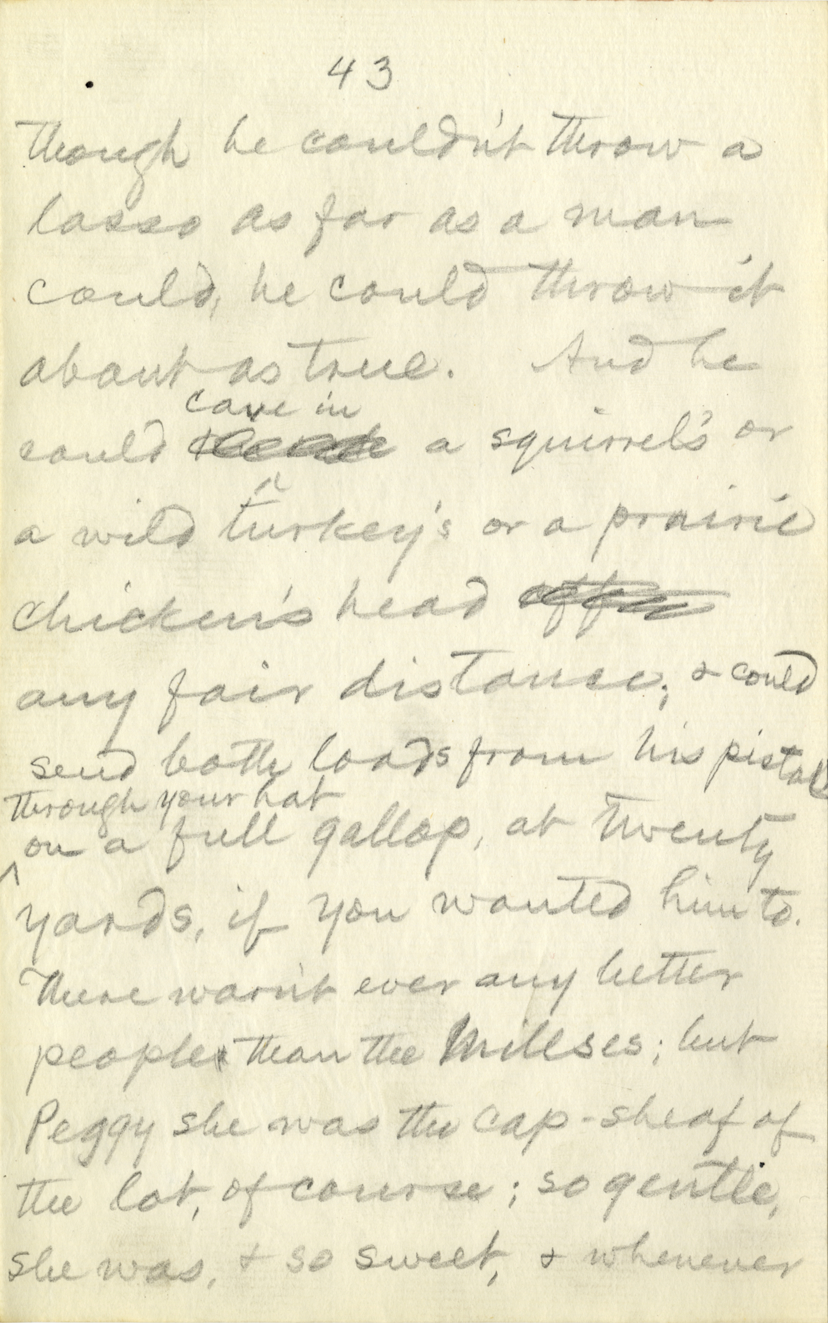 43
though he couldn't throw a
lasso as far as a man
could, he could throw it
about as true. And he
cave in
could a squirrel's or
a wild turkey's or a prairie
chicken's head
any fair distance; & could
send both loads from his pistol
through your hat
on a full gallop, at twenty
yards, if you wanted him to.
There warn't ever any better
people than the Millses; but
Peggy she was the cap-sheaf of
the lot, of course; so gentle,
she was, & so sweet, & whenever